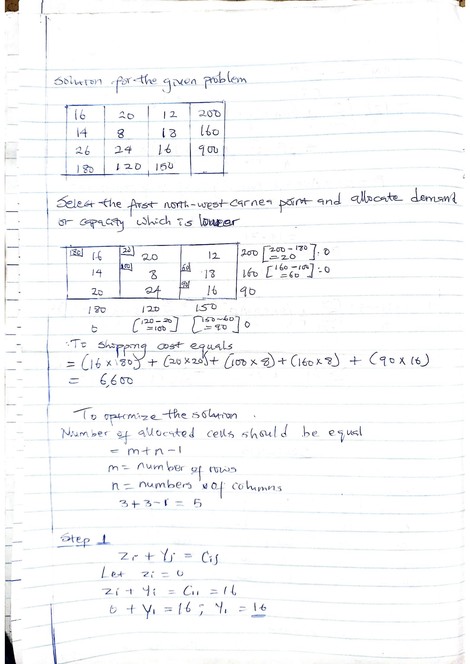 Solution for the given problem
16 20 12 200
14 8 18 160
26 24 16 900
180 120 150
Select the first north-west corner point and allocate demand
or capacity which is lower
180 16 20 20 12 200 [200-180 =20] : 0
14 100 8 60 18 160 [160-100 =60] : 0
20 24 90 16 90
180 120 150
0 [120-20 =100] [150-60 =90] 0
∴ To shipping cost equals
= (16 x 180) + (20 x 20) + (100 x 8) + (160 x 8) + (90 x 16)
= 6,600
To optimize the solution.
Number of allocated cells should be equal
= m+n-1
m = number of rows
n = numbers of columns
3+3-1 = 5
Step 1
Zi + Yj = Cij
Let Zi = 0
Zi + Yi = C11 = 16
0 + Y1 = 16 ; Y1 = 16